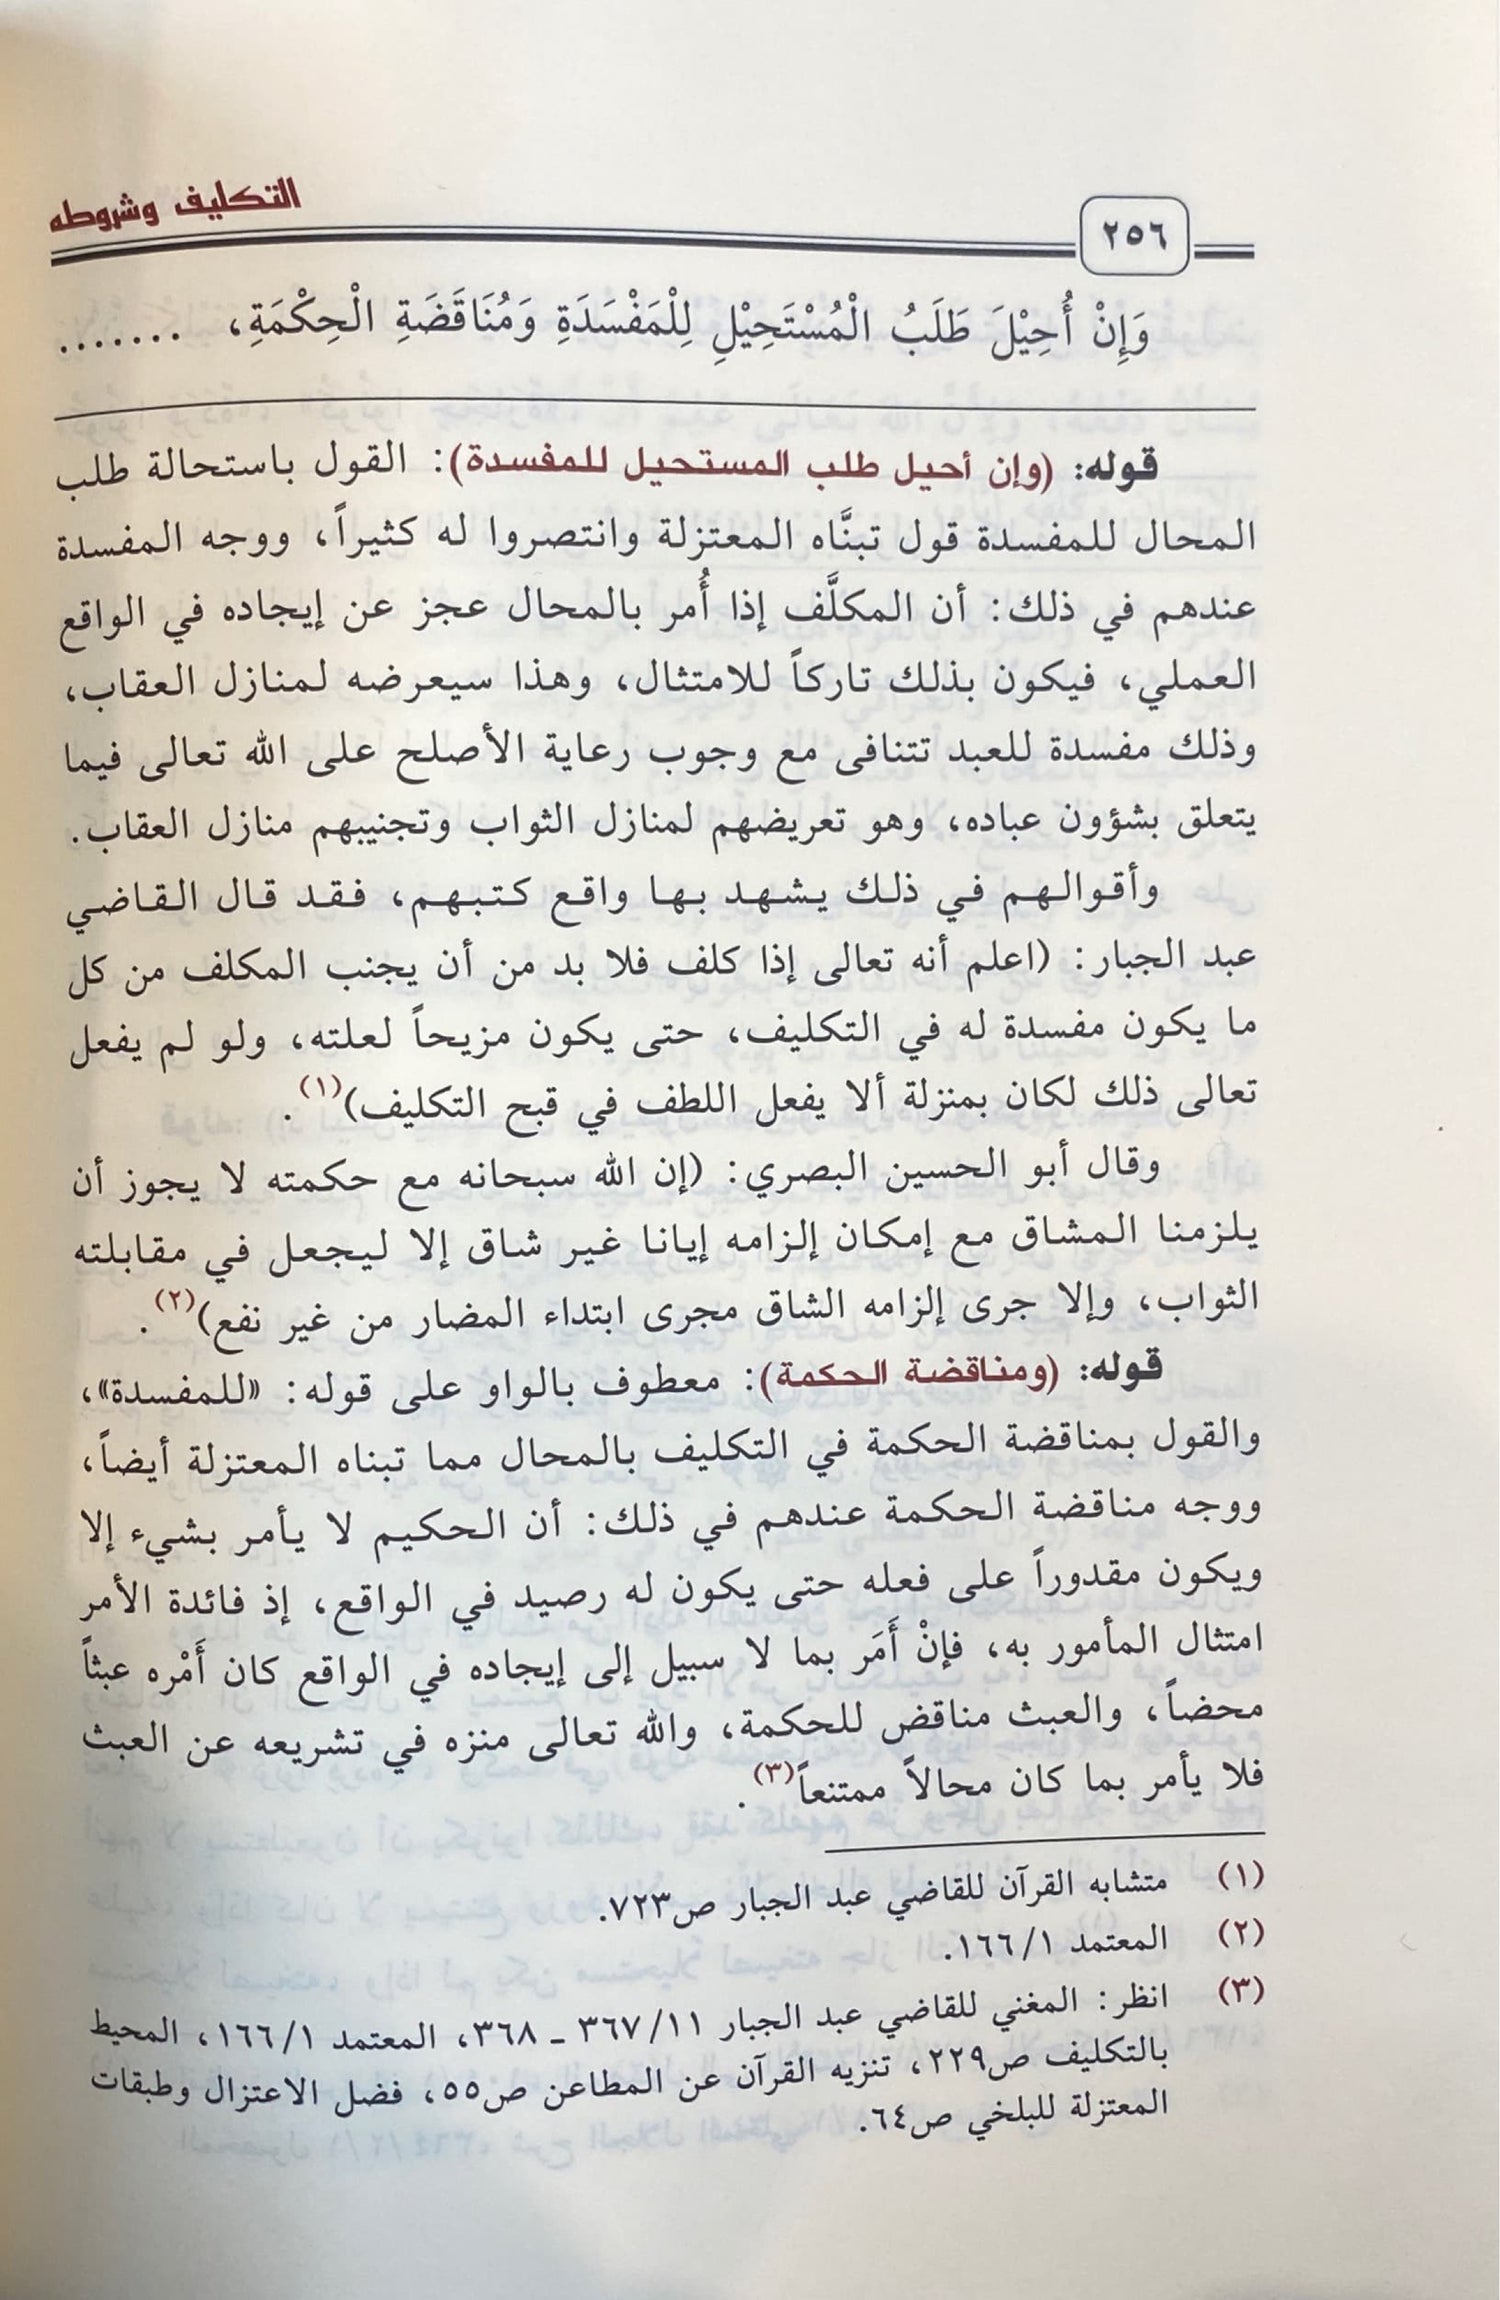 التكليف وشروطه
٢٥٦
وَإِنْ أُحِيْلَ طَلَبُ الْمُسْتَحِيْلِ لِلْمَفْسَدَةِ وَمُنَاقَضَةِ الْحِكْمَةِ، .......
قوله: (وإن أحيل طلب المستحيل للمفسدة): القول باستحالة طلب
المحال للمفسدة قول تبنَّاه المعتزلة وانتصروا له كثيراً، ووجه المفسدة
عندهم في ذلك: أن المكلَّف إذا أُمر بالمحال عجز عن إيجاده في الواقع
العملي، فيكون بذلك تاركاً للامتثال، وهذا سيعرضه لمنازل العقاب،
وذلك مفسدة للعبد تتنافى مع وجوب رعاية الأصلح على الله تعالى فيما
يتعلق بشؤون عباده، وهو تعريضهم لمنازل الثواب وتجنيبهم منازل العقاب.
وأقوالهم في ذلك يشهد بها واقع كتبهم، فقد قال القاضي
عبد الجبار: (اعلم أنه تعالى إذا كلف فلا بد من أن يجنب المكلف من كل
ما يكون مفسدة له في التكليف، حتى يكون مزيحاً لعلته، ولو لم يفعل
تعالى ذلك لكان بمنزلة ألا يفعل اللطف في قبح التكليف)(١).
وقال أبو الحسين البصري: (إن الله سبحانه مع حكمته لا يجوز أن
يلزمنا المشاق مع إمكان إلزامه إيانا غير شاق إلا ليجعل في مقابلته
الثواب، وإلا جرى إلزامه الشاق مجرى ابتداء المضار من غير نفع)(٢).
قوله: (ومناقضة الحكمة): معطوف بالواو على قوله: «للمفسدة»،
والقول بمناقضة الحكمة في التكليف بالمحال مما تبناه المعتزلة أيضاً،
ووجه مناقضة الحكمة عندهم في ذلك: أن الحكيم لا يأمر بشيء إلا
ويكون مقدوراً على فعله حتى يكون له رصيد في الواقع، إذ فائدة الأمر
امتثال المأمور به، فإنْ أَمَر بما لا سبيل إلى إيجاده في الواقع كان أَمْره عبثاً
محضاً، والعبث مناقض للحكمة، والله تعالى منزه في تشريعه عن العبث
فلا يأمر بما كان محالاً ممتنعاً(٣).
(١) متشابه القرآن للقاضي عبد الجبار ص٧٢٣.
(٢) المعتمد ١٦٦/١.
(٣) انظر: المغني للقاضي عبد الجبار ٣٦٧/١١ ـ ٣٦٨، المعتمد ١٦٦/١، المحيط
بالتكليف ص٢٢٩، تنزيه القرآن عن المطاعن ص٥٥، فضل الاعتزال وطبقات
المعتزلة للبلخي ص٦٤.